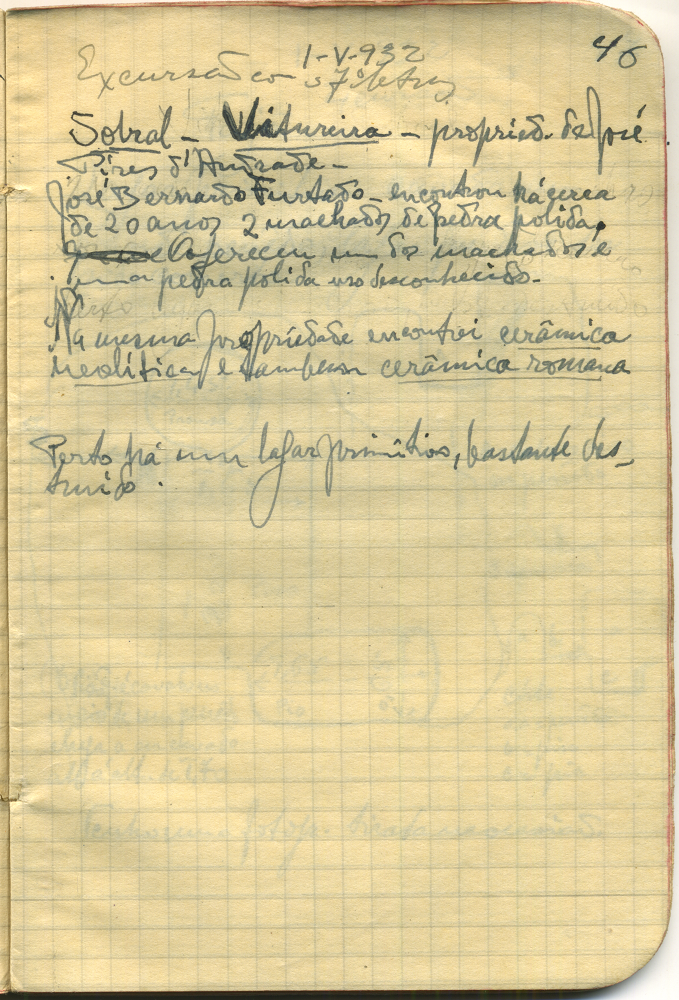 46
1-V-932
Excursão com
Sobral - Veitureira - propried. de José
Pires d'Andrade -
José Bernardo Furtado - encontrou há cerca
de 20 anos 2 machados de pedra polida.
Ofereceu um dos machados e
uma pedra polida uso desconhecido.
Na mesma propriedade encontrei cerâmica
neolítica e tambem cerâmica romana
Perto há um lagar primitivo, bastante des_
truido.